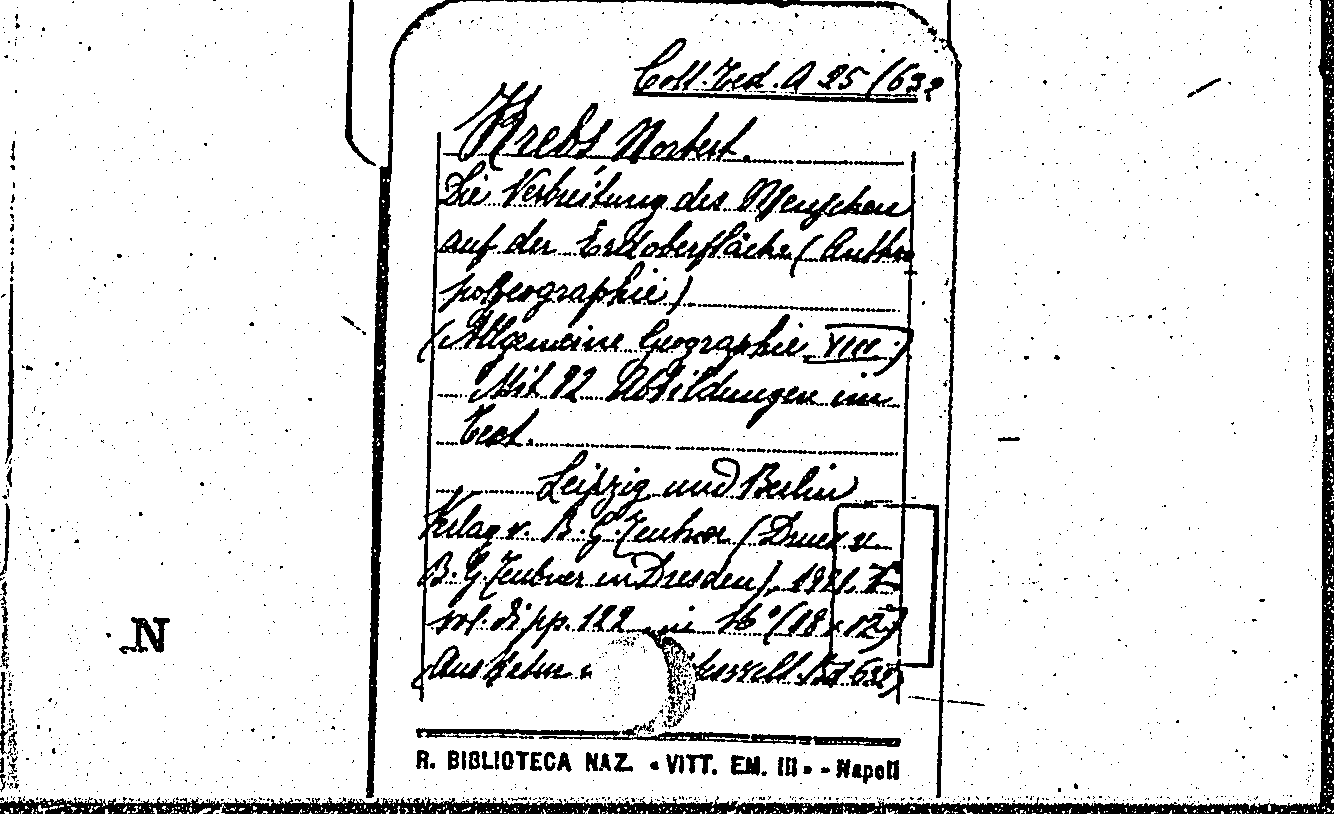 Coll. Ted. A 25/632
Krebs Norbert.
Die Verbreitung des Menschen
auf der Erdoberfläche (Anthro
pogeographie)
(Allgemeine Geographie VIII.)
Mit 12 Abbildungen im
Text.
Leipzig und Berlin
Verlag v. B. G. Teubner (Druck v.
B. G. Teubner in Dresden), 1921. I
vol. di pp. 122 in 16° (18 x 12)
(Aus Natur u Geisteswelt. Bd 632)
N
R. BIBLIOTECA NAZ. « VITT. EM. III » - Napoli